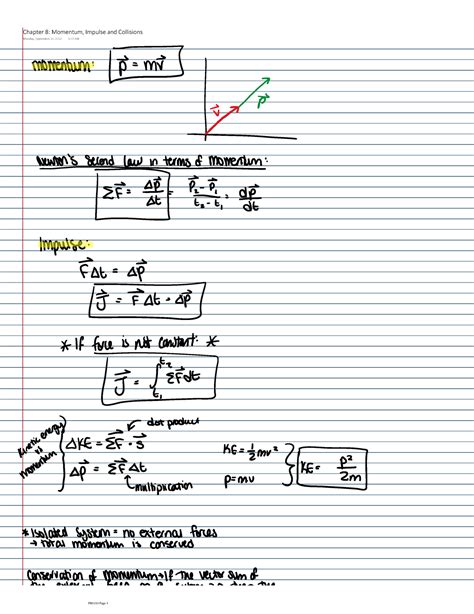 Chapter 8: Momentum, Impulse and Collisions
momentum: p⃗ = mv⃗
v⃗ p⃗
Newton's Second Law in terms of momentum:
ΣF⃗ = Δp⃗/Δt = (p⃗₂ - p⃗₁)/(t₂ - t₁) = dp⃗/dt
Impulse:
F⃗Δt = Δp⃗
J⃗ = F⃗Δt = Δp⃗
* If force is not constant: *
J⃗ = ∫ₜ₁ᵗ² ΣF⃗dt
dot product
Kinetic energy vs momentum
ΔKE = ΣF⃗ · s⃗
Δp⃗ = ΣF⃗ Δt
multiplication
KE = ½mv²
p = mv
KE = p²/2m
* Isolated system = no external forces
→ total momentum is conserved
Conservation of momentum → If the vector sum of